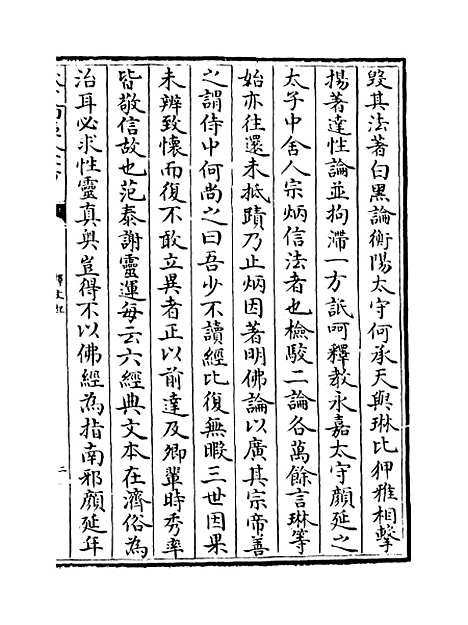 毀其法著白黑論衡陽太守何承天與琳比狎雅相擊
揚著達性論並拘滯一方詆呵釋教永嘉太守顔延之
太子中舍人宗炳信法者也檢駁二論各萬餘言琳等
始亦往還未抵蹟乃止炳因著明佛論以廣其宗帝善
之謂侍中何尚之曰吾少不讀經比復無暇三世因果
未辨致懷而復不敢立異者正以前達及卿輩時秀率
皆敬信故也范泰謝靈運每云六經典文本在濟俗為
治耳必求性靈真奥豈得不以佛經為指南邪顔延年
釋文紀
二